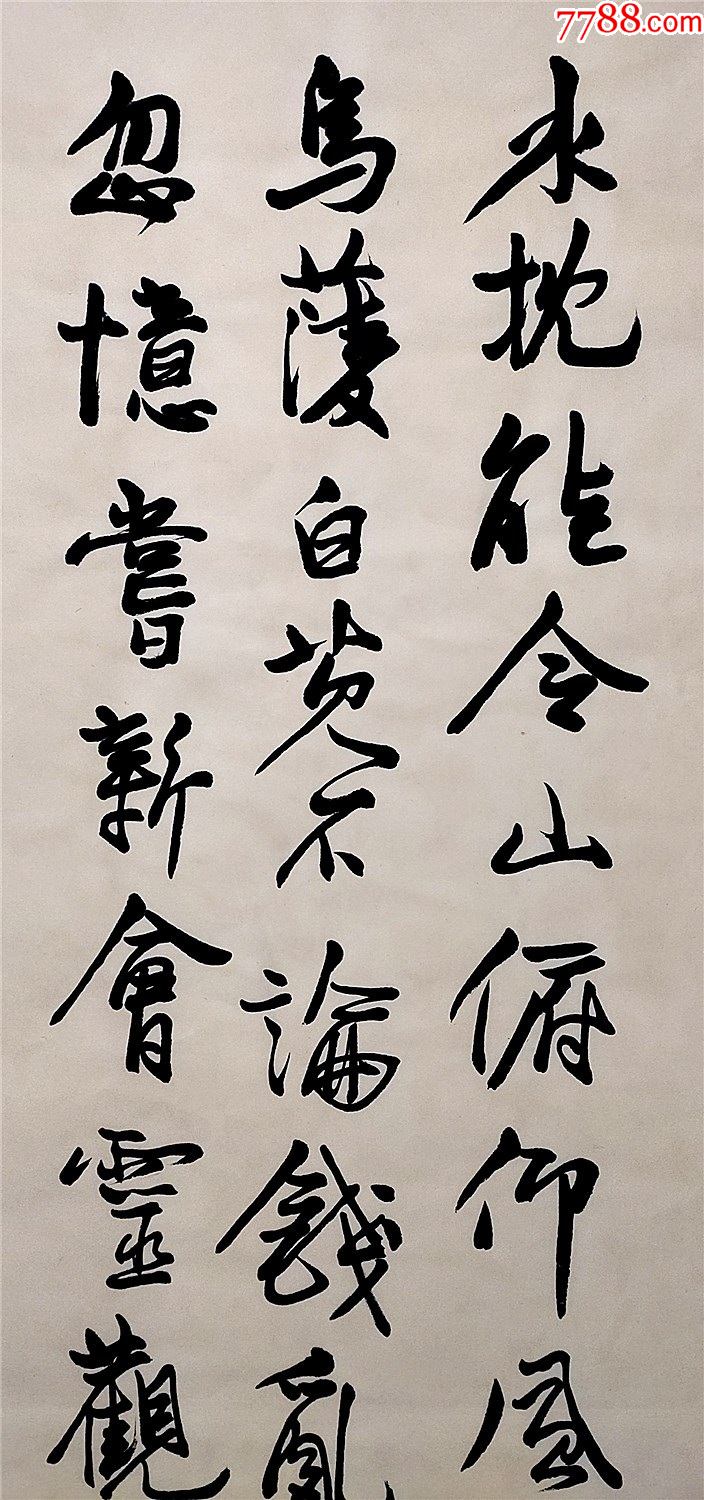 7788.com
水枕能令山俯仰風
烏菱白芡不論錢亂
忽憶嘗新會靈觀